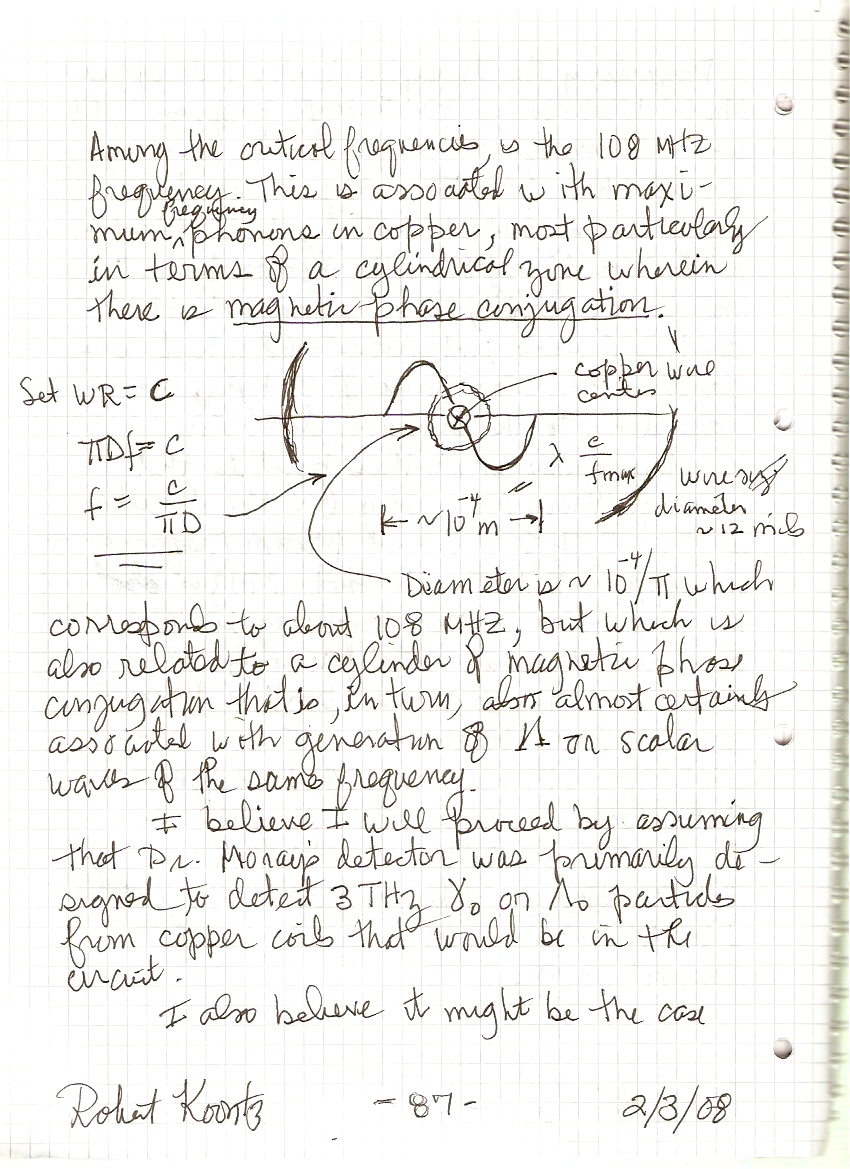 Among the critical frequencies, is the 108 MHz
frequency. This is associated with maxi-
frequency
mum ^ phonons in copper, most particularly
in terms of a cylindrical zone wherein
there is magnetic phase conjugation.
copper wire
center
Set WR = C
πDf = C
f = c/πD
λ c/fmax
wire size
diameter
~ 12 mils
|← ~10⁻⁴m →|
Diameter is ~ 10⁻⁴/π which
corresponds to about 108 MHz, but which is
also related to a cylinder of magnetic phase
conjugation that is, in turn, also almost certainly
associated with generation of Λ or scalar
waves of the same frequency.
I believe I will proceed by assuming
that Dr. Moray's detector was primarily de-
signed to detect 3 THz γ₀ or Λ₀ particles
from copper coils that would be in the
circuit.
I also believe it might be the case
Robert Koontz
- 87 -
2/3/08